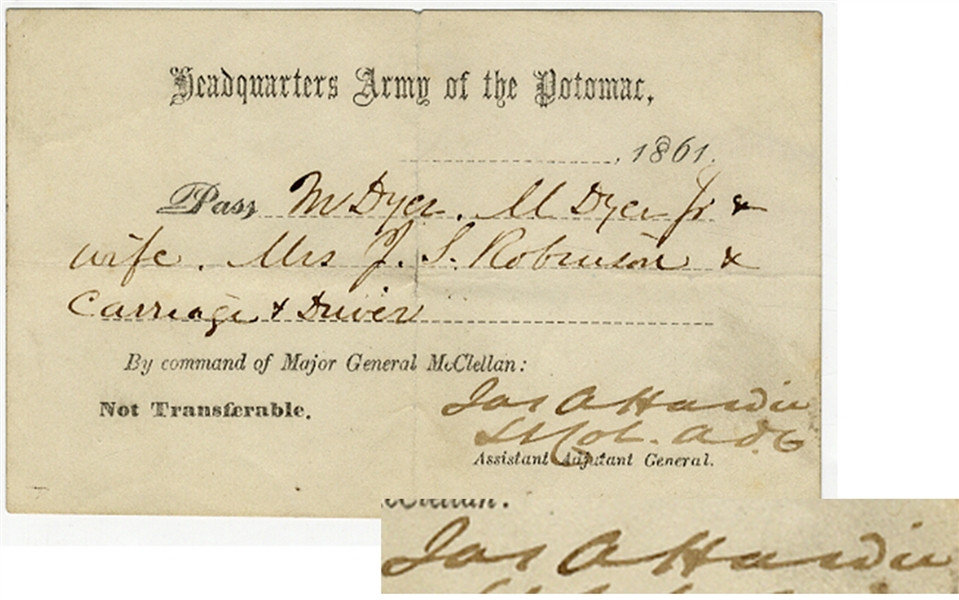 Headquarters Army of the Potomac,
, 1861.
Pass M Dyer. M Dyer Jr &
wife. Mrs J. S. Robinson &
Carriage & Driver
By command of Major General McClellan:
Not Transferable.
Jas A Hardie
Lt Col. A.D.C
Assistant Adjutant General.
McClellan:
Jas A Hardie